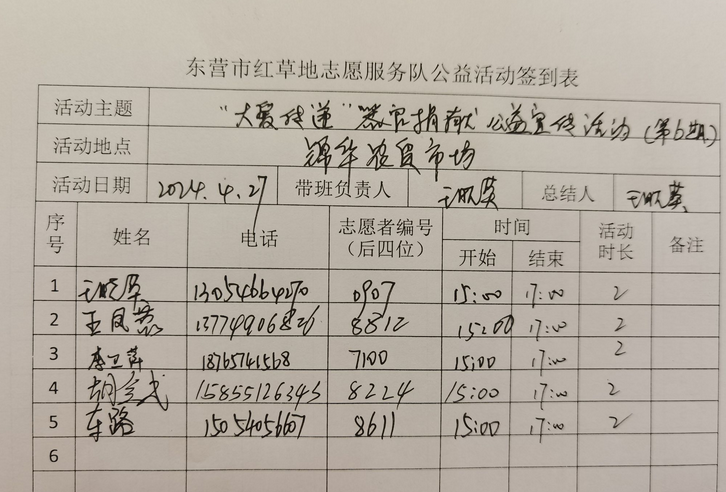 东营市红草地志愿服务队公益活动签到表
活动主题 “大爱传递”器官捐献公益宣传活动(第6期)
活动地点 锦华农贸市场
活动日期 2024.4.27 带班负责人 总结人
序号 姓名 电话 志愿者编号(后四位) 时间 开始 结束 活动时长 备注
1 13054664270 0907 15:00 17:00 2
2 王凤 13774906826 8812 15:00 17:00 2
3 李卫萍 18765741568 7100 15:00 17:00 2
4 胡 15855126343 8224 15:00 17:00 2
5 车路 15054056607 8611 15:00 17:00 2
6